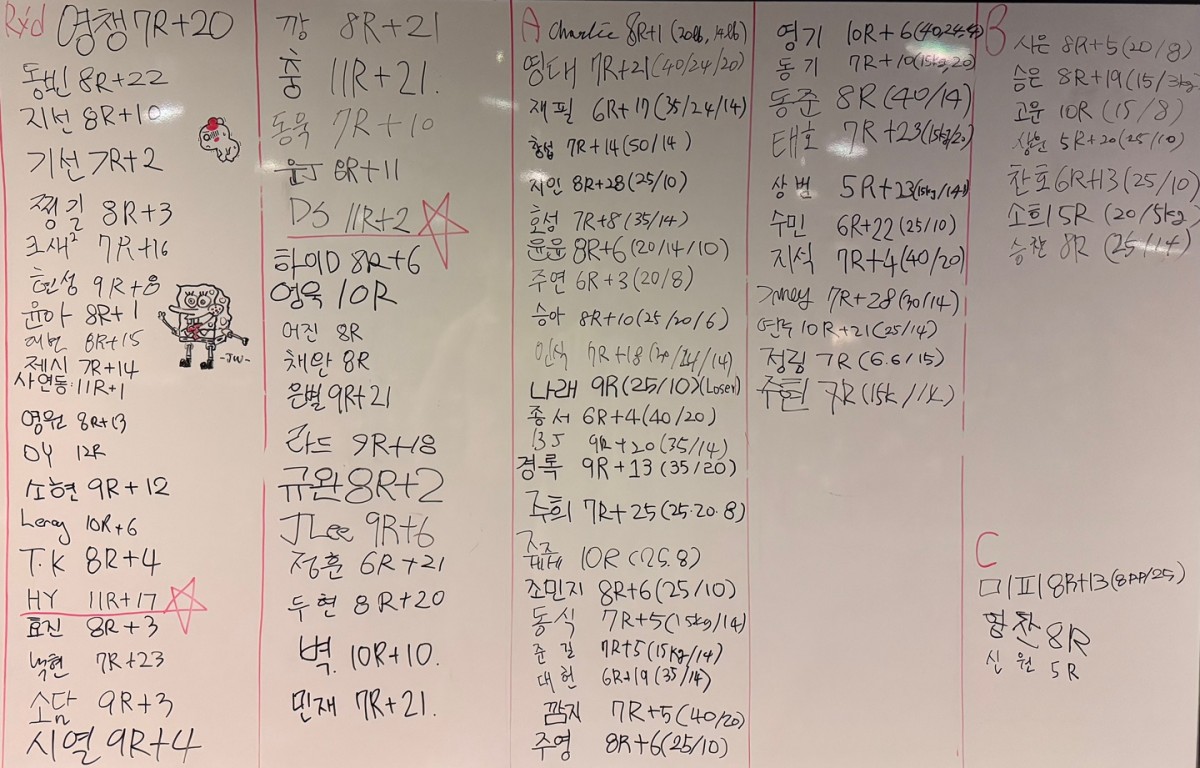 Rxd
영챙 7R+20
동빈 8R+22
지선 8R+10
기선 7R+2
찡길 8R+3
조새² 7R+16
현성 9R+8
윤아 8R+1
8R+15
제시 7R+14
사연동 11R+1
영원 8R+13
DY 12R
소현 9R+12
Leroy 10R+6
T.K 8R+4
HY 11R+17
효진 8R+3
낙현 7R+23
소담 9R+3
시열 9R+4
-JW-
깡 8R+21
홍 11R+21.
동욱 7R+10
윤J 8R+11
DS 11R+2
하이D 8R+6
영욱 10R
어진 8R
채안 8R
은별 9R+21
라드 9R+18
규완 8R+2
JLee 9R+6
정훈 6R+21
두현 8R+20
벽. 10R+10.
민재 7R+21.
A
Charlie 8R+1 (20lb, 14lb)
영태 7R+21(40/24/20)
재필 6R+17(35/24/14)
형섭 7R+14(50/14)
지인 8R+28(25/10)
호성 7R+8(35/14)
윤윤 8R+6(20/14/10)
주연 6R+3(20/8)
승아 8R+10(25/20/6)
인식 7R+18(30/24/14)
나래 9R(25/10)(Loser)
종서 6R+4(40/20)
BJ 9R+20(35/14)
경록 9R+13(35/20)
주희 7R+25(25.20.8)
쥬쥬 10R (25.8)
조민지 8R+6(25/10)
동식 7R+5(15kg/14)
준길 7R+5(15kg/14)
대현 6R+19(35/14)
깜지 7R+5(40/20)
주영 8R+6(25/10)
영기 10R+6(40,24
동기 7R+10(15kg,20)
동준 8R(40/14)
태호 7R+23(15kg/20)
상범 5R+23(15kg/14
수민 6R+22(25/10)
지석 7R+4(40/20)
7R+28(30/14)
연주 10R+21(25/14)
정림 7R(6.6/15)
주현 7R(15k/1k)
B
시은 8R+5(20/8)
슴은 8R+19(15/3kg
고운 10R(15/8)
상원 5R+20(25/10)
찬호 6R+13(25/10)
소희 5R (20/5kg
승찬 8R (25/14)
C
미피 8R+13(8PP/25)
형찬 8R
신원 5R